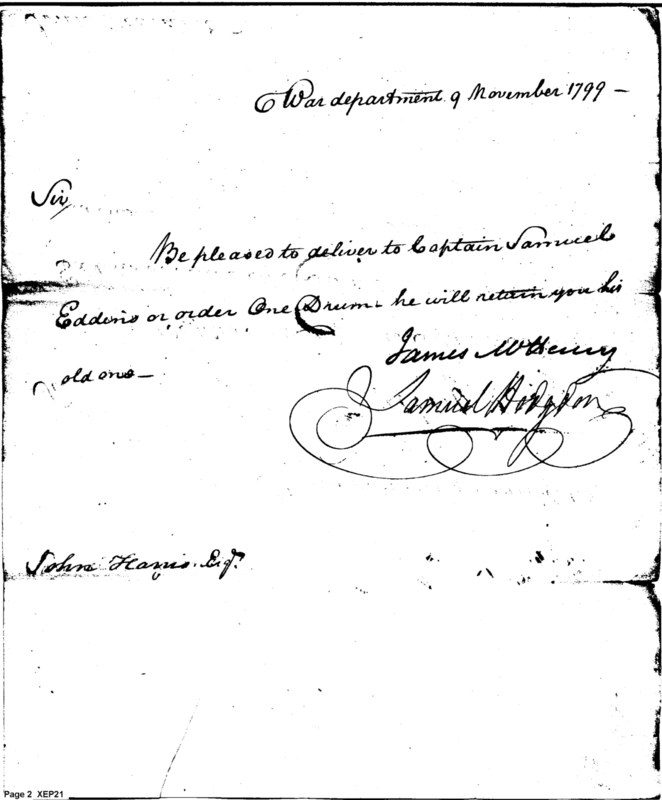 War department 9 November 1799 —
Sir
Be pleased to deliver to Captain Samuel
Eddins or order One Drum - he will return you his
old one —
James McHenry
Samuel Hodgdon
John Harris. Esqr.
Page 2 XEP21